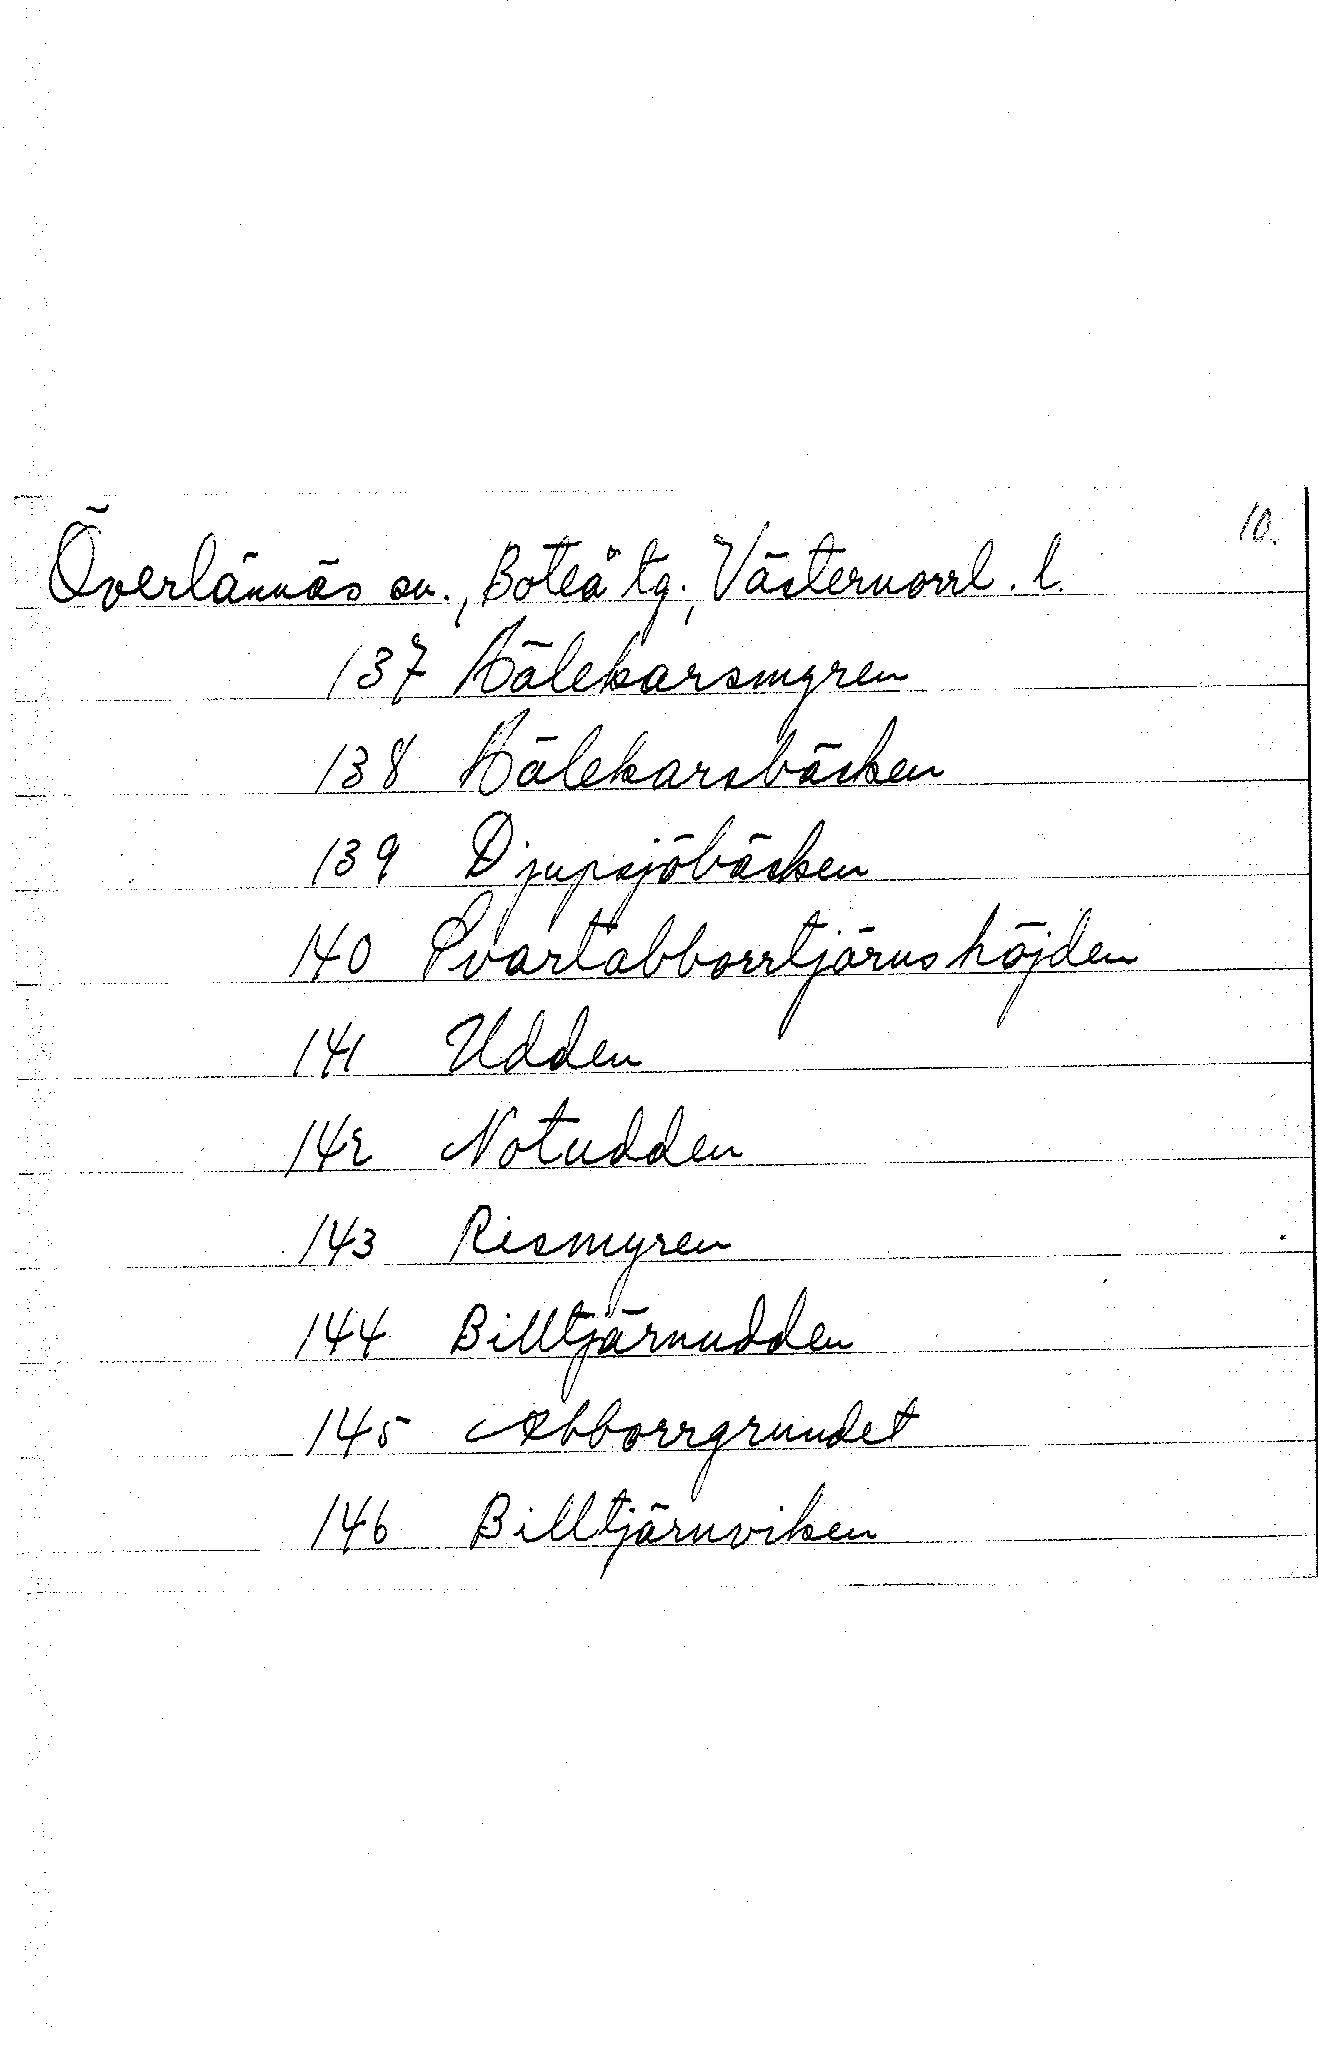 10.
Överlännäs sn., Boteå tg., Västernorrl. l.
137 Hälekarsmyren
138 Hälekarsbäcken
139 Djupsjöbäcken
140 Svartabborrtjärnshöjden
141 Udden
142 Notudden
143 Rismyren
144 Billtjärnudden
145 Abborrgrundet
146 Billtjärnviken